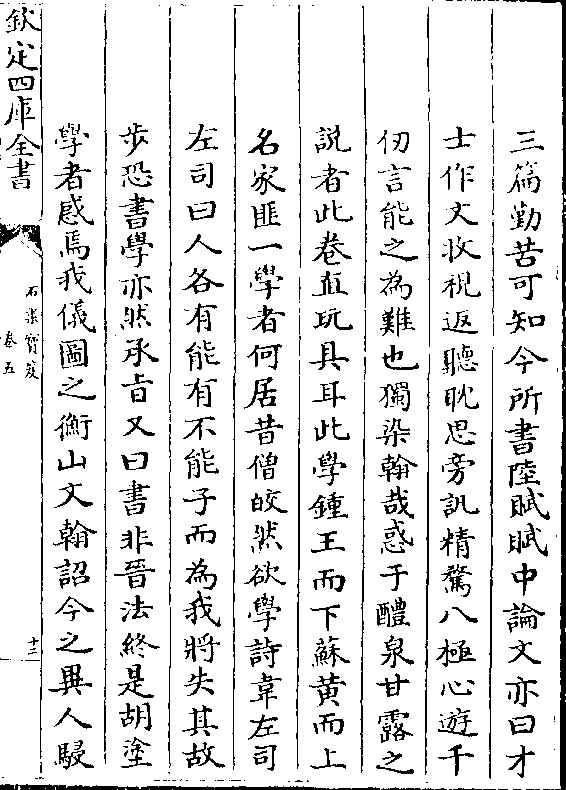 三篇勤苦可知今所書陸賦賦中論文亦曰才
士作文收視返聽耽思旁訊精騖八極心遊千
仞言能之為難也獨染翰哉惑于醴泉甘露之
説者此卷直玩具耳此學鍾王而下蘇黄而上
名家匪一學者何居昔僧皎然欲學詩韋左司
左司曰人各有能有不能子而為我將失其故
步恐書學亦然承旨又曰書非晉法終是胡塗
學者慼焉我儀圖之衡山文翰詔今之異人駸
欽定四庫全書
石渠寳笈
卷五
十三